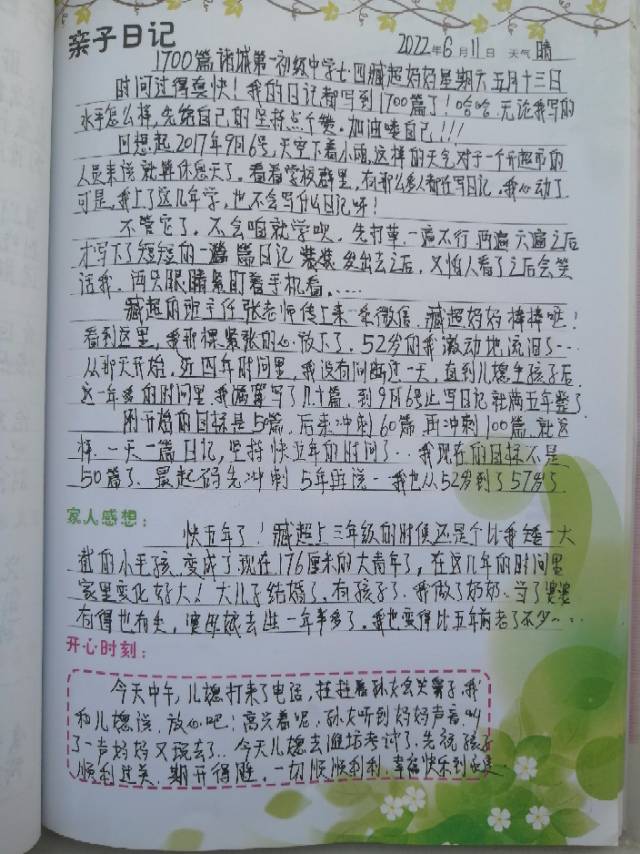 亲子日记
2022年6月11日 天气 晴
1700篇 诸城第一初级中学七.四臧超妈妈星期六五月十三日
时间过得真快！我的日记都写到1700篇了！哈哈.无论我写的
水平怎么样，先给自己的坚持点个赞.加油喽自己！！！
回想起2017年9月6号，天空下着小雨，这样的天气对于一个开超市的
人员来说就算休息天了。看着学校群里，有那么多人都在写日记。我心动了
可是，我上了这几年学，也不会写什么日记呀！
不管它了。不会咱就学呗。先打草，一遍不行，两遍，六遍之后
才写下了短短的一篇日记 发出去之后，又怕人看了之后会笑
话我.两只眼睛紧盯着手机看.……
臧超的班主任张老师传上来一条微信.臧超妈妈棒棒哒！
看到这里，我那颗紧张的心放下了.52岁的我激动地流泪了…
从那天开始，近四年时间里，我没有间断过一天，直到儿媳生孩子后
这一年多的时间里我写了几十篇.到9月6号止写日记就满五年整了
刚开始的目标是50篇，后来冲刺60篇再冲刺100篇.就这
样.一天一篇日记，坚持快五年的时间了…我现在的目标不是
50篇了.最起码先冲刺5年再说…我也从52岁到了57岁了
家人感想：
快五年了！臧超上三年级的时候还是个比我矮一大
截的小毛孩.变成了现在176厘米的大青年了，在这几年的时间里
家里变化好大！大儿子结婚了.有孩子了.我做了奶奶.当了婆婆
有得也有失，婆母娘去世一年半多了.我也变得比五年前老了不少…
开心时刻：
今天中午，儿媳打来了电话，挂挂着孙女会哭鼻子，我
和儿媳说.放心吧！高兴着呢.孙女听到妈妈声音.叫
了一声妈妈又玩去了.今天儿媳去潍坊考试了.先祝孩子
顺利过关.期开得胜.一切顺顺利利.幸福快乐到永远